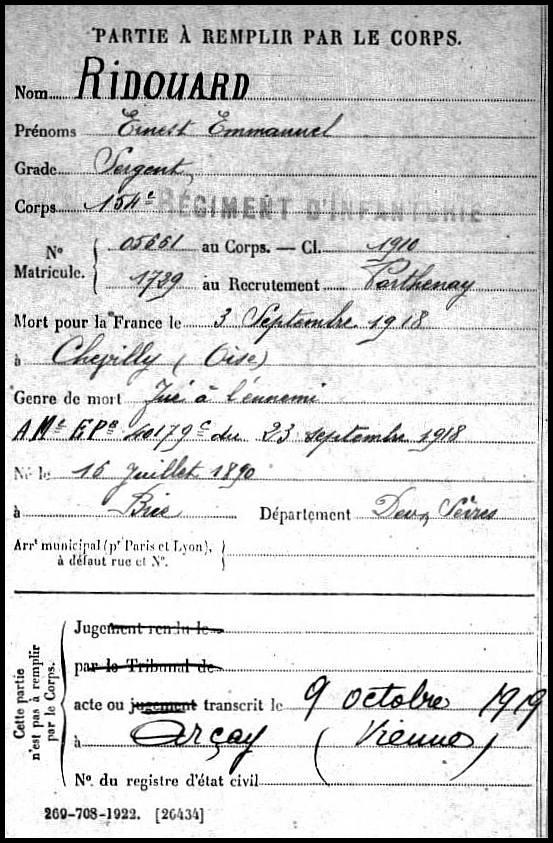 PARTIE À REMPLIR PAR LE CORPS.
Nom RIDOUARD
Prénoms Ernest Emmanuel
Grade Sergent
Corps 154e RÉGIMENT D'INFANTERIE
No Matricule. { 05661 au Corps. — Cl. 1910
1739 au Recrutement Parthenay
Mort pour la France le 3 Septembre 1918
à Chevilly (Oise)
Genre de mort Tué à l'ennemi
AMt du 23 septembre 1918
Né le 16 Juillet 1890
à Brie Département Deux Sèvres
Arrt municipal (pr Paris et Lyon), à défaut rue et No.
Cette partie n'est pas à remplir par le Corps.
Jugement rendu le
par le Tribunal de
acte ou jugement transcrit le 9 octobre 1919
à Arçay (Vienne)
No. du registre d'état civil
269-708-1922. [26434]